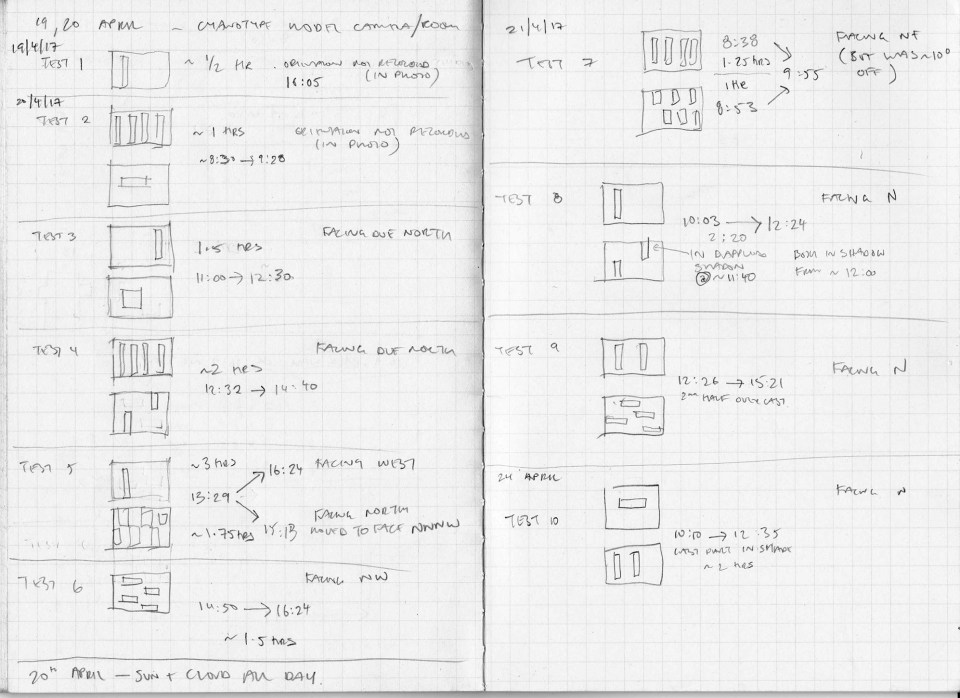 19, 20 APRIL ~ CYANOTYPE MODEL CAMERA/ROOM
19/4/17
TEST 1
~ 1/2 HR . ORIENTATION NOT RECORDED
(IN PHOTO)
16:05
20/4/17
TEST 2
~ 1 HRS ORIENTATION NOT RECORDED
(IN PHOTO)
~8:30 → 9:28
TEST 3
FACING DUE NORTH
1.5 HRS
11:00 → 12:30
TEST 4
FACING DUE NORTH
~2 HRS
12:32 → 14:40
TEST 5
~3 HRS
16:24 FACING WEST
13:29
FACING NORTH
~1.75HRS 15:13 MOVED TO FACE NNNW
TEST 6
FACING NW
14:50 → 16:24
~ 1.5 HRS
20TH APRIL — SUN + CLOUD ALL DAY.
21/4/17
TEST 7
8:38
1.25 HRS
9:55
1HR
8:53
FACING NE
(BUT WAS ~10°
OFF)
TEST 8
FACING N
10:03 → 12:24
2:20
IN DAPPLED
SHADOW
@ ~11:40
BOTH IN SHADOW
FROM ~ 12:00
TEST 9
FACING N
12:26 → 15:21
2ND HALF OVERCAST
24 APRIL
FACING N
TEST 10
10:10 → 12:35
LAST PART IN SHADE
~ 2 HRS